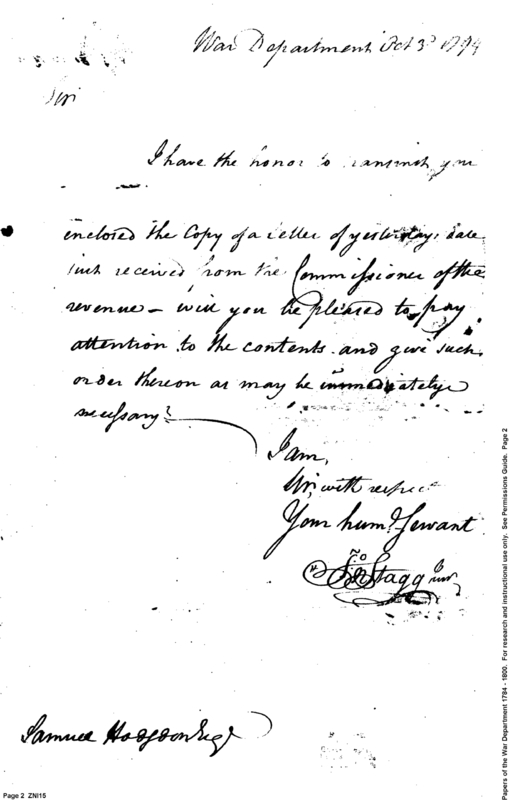 War Department Oct 3d 1794
Sir
I have the honor to transmit you
enclosed the Copy of a Letter of yesterdays date
just received from the Commissioner of the
revenue – will you be pleased to pay
attention to the contents and give such
order thereon as may be immediately
necessary?
I am,
Sir, with respect
Your humb. Servant
Jno Stagg Junr
Samuel Hodgdon Esqr
Page 2 ZNI15
Papers of the War Department 1784 - 1800. For research and instructional use only. See Permissions Guide. Page 2